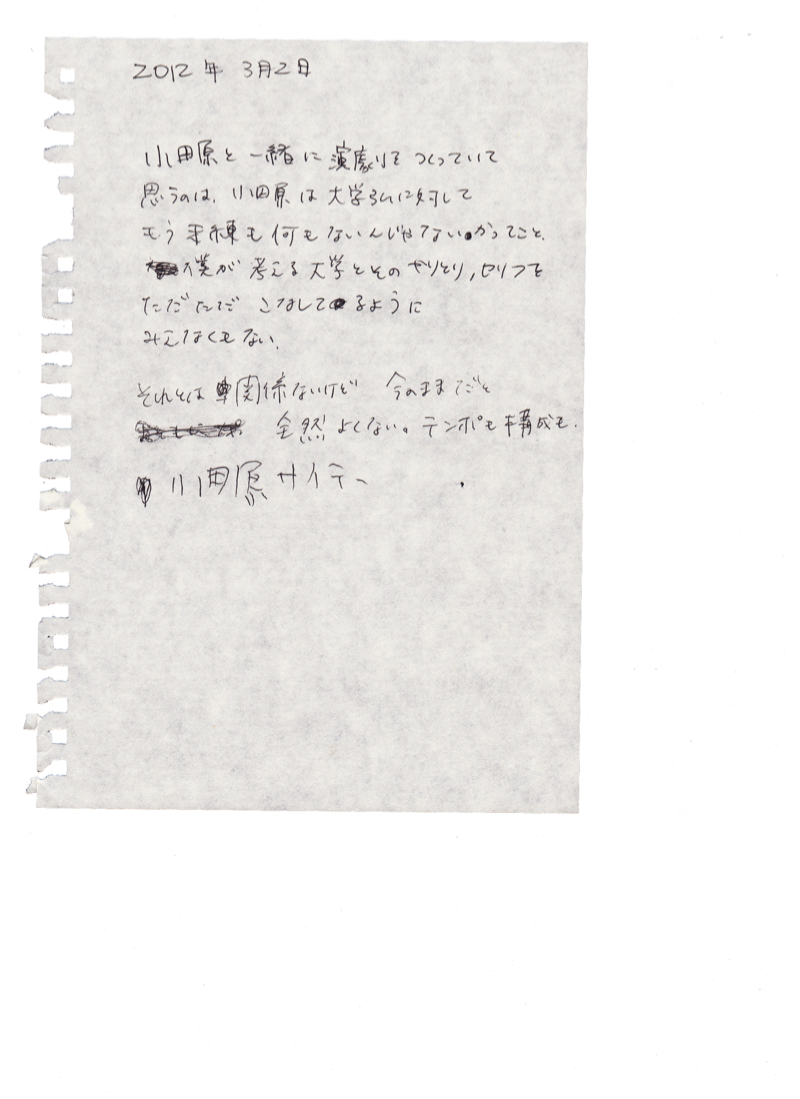 2012年 3月2日
小田原と一緒に演劇をつくっていて
思うのは、小田原は大学3年に対して
もう未練も何もないんじゃないかってこと、
僕が考える大学とそのやりとり,セリフを
ただただこなしてるように
みえなくもない、
それとは関係ないけど 今のままだと
全然よくない。テンポも構成も.
小田原サイテー